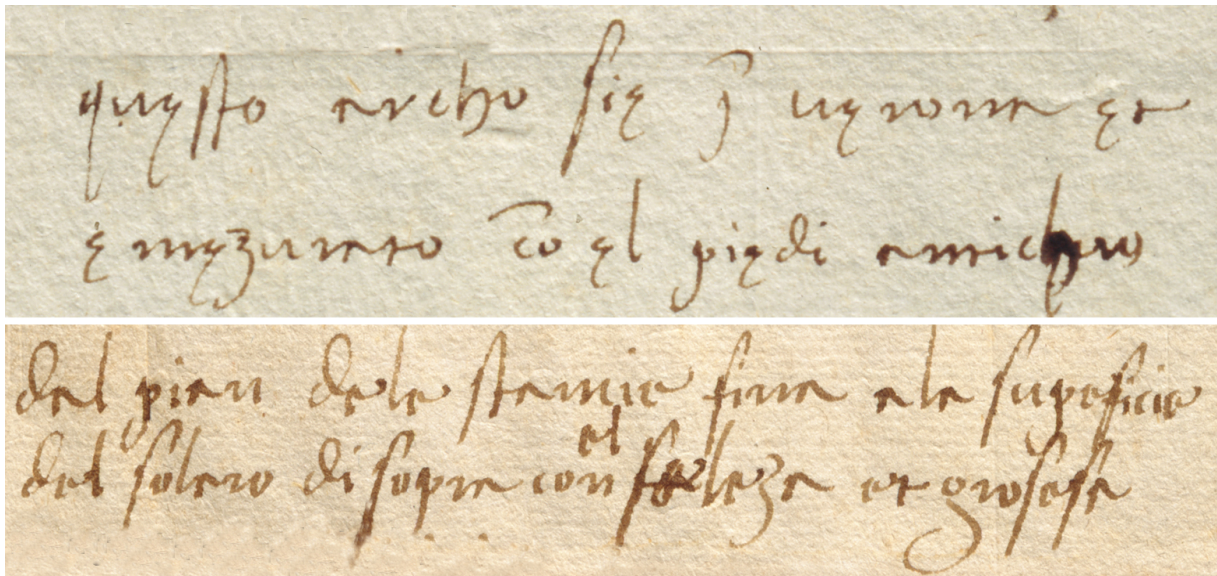 questo archo sie ĩ uerona et
e mezurato cõ el piedi
del pian dele stancie fina ala supeficie
del solaro di sopra con el et grosesa